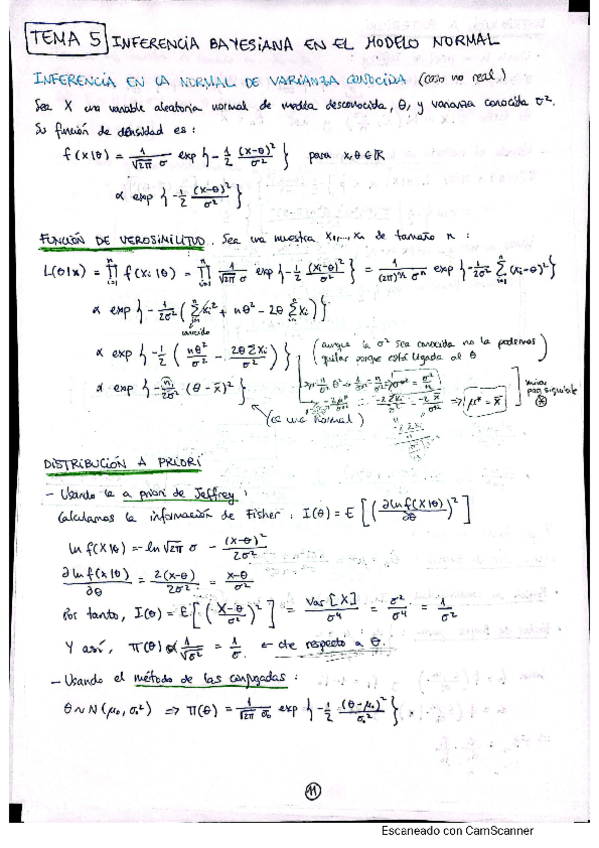 TEMA 5 INFERENCIA BAYESIANA EN EL MODELO NORMAL
INFERENCIA EN LA NORMAL DE VARIANZA CONOCIDA (caso no real)
Sea X una variable aleatoria normal de media desconocida, θ, y varianza conocida σ².
Su función de densidad es:
f(x|θ) = 1/(√2π σ) exp{-1/2 (x-θ)²/σ²} para x,θ ∈ ℝ
α exp{-1/2 (x-θ)²/σ²}
FUNCIÓN DE VEROSIMILITUD. Sea una muestra x₁,...,xₙ de tamaño n:
L(θ|x) = ∏ᵢ₌₁ⁿ f(xᵢ|θ) = ∏ᵢ₌₁ⁿ 1/(√2π σ) exp{-1/2 (xᵢ-θ)²/σ²} = 1/((2π)^(n/2) σⁿ) exp{-1/2σ² Σᵢ₌₁ⁿ (xᵢ-θ)²}
α exp{-1/2σ² (Σᵢ₌₁ⁿ xᵢ² + nθ² - 2θ Σᵢ₌₁ⁿ xᵢ)}
conocido
α exp{-1/2 (nθ²/σ² - 2θΣxᵢ/σ²)} (aunque la σ² sea conocida no la podemos
quitar porque está ligada al θ)
α exp{-n/2σ² (θ - x̄)²}
⇒ μ* = x̄
mirar
pag siguiente
(es una normal)
DISTRIBUCIÓN A PRIORI
- Usando la a priori de Jeffrey:
Calculamos la información de Fisher: I(θ) = E[(∂ln f(X|θ)/∂θ)²]
ln f(X|θ) = -ln √2π σ - (x-θ)²/2σ²
∂ln f(x|θ)/∂θ = 2(x-θ)/2σ² = x-θ/σ²
Por tanto, I(θ) = E[(X-θ/σ²)²] = Var[X]/σ⁴ = σ²/σ⁴ = 1/σ²
Y así, π(θ) α 1/√σ² = 1/σ. ← cte respecto a θ.
- Usando el método de las conjugadas:
θ ~ N(μ₀, σ₀²) ⇒ π(θ) = 1/(√2π σ₀) exp{-1/2 (θ-μ₀)²/σ₀²}.
11
Escaneado con CamScanner